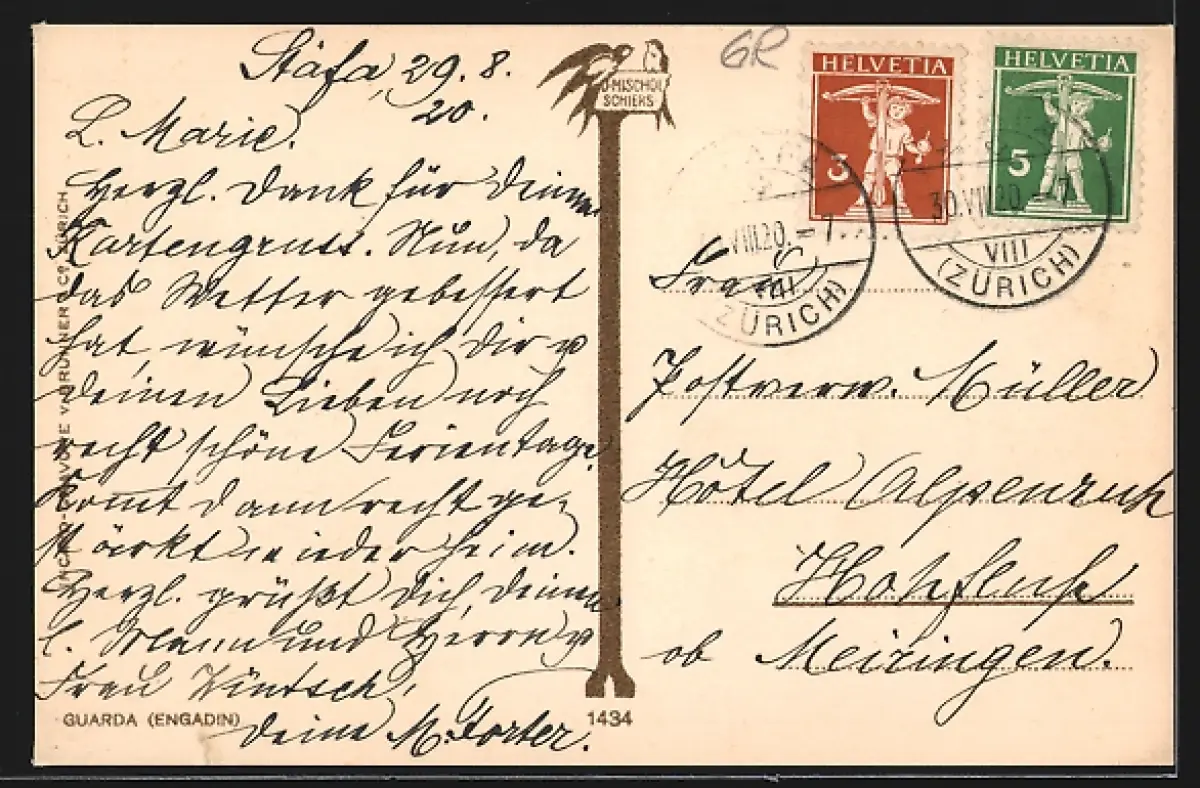 Stäfa, 29. 8.
20.
L. Marie.
Herzl. Dank für Deinen
Kartengruss. Nun, da
das Wetter gebessert
hat, wünsche ich Dir u
deinen Lieben noch
recht schöne Ferientage.
Komt dann recht ge-
stärkt wieder heim.
Herzl. grüßt Dich, Deinen
l. Mann und Herrn u
Frau
Deine M. Forter.
GUARDA (ENGADIN)
VIII.20.-7
VIII
(ZÜRICH)
1434
J. MISCHOL
SCHIERS
GR
HELVETIA
3
HELVETIA
5
30.VIII.20.-7
VIII
(ZÜRICH)
Frau
Postverw. Müller
Hôtel Alpenruh
Hohfluh
ob Meiringen.
BRUNNER Co ZÜRICH